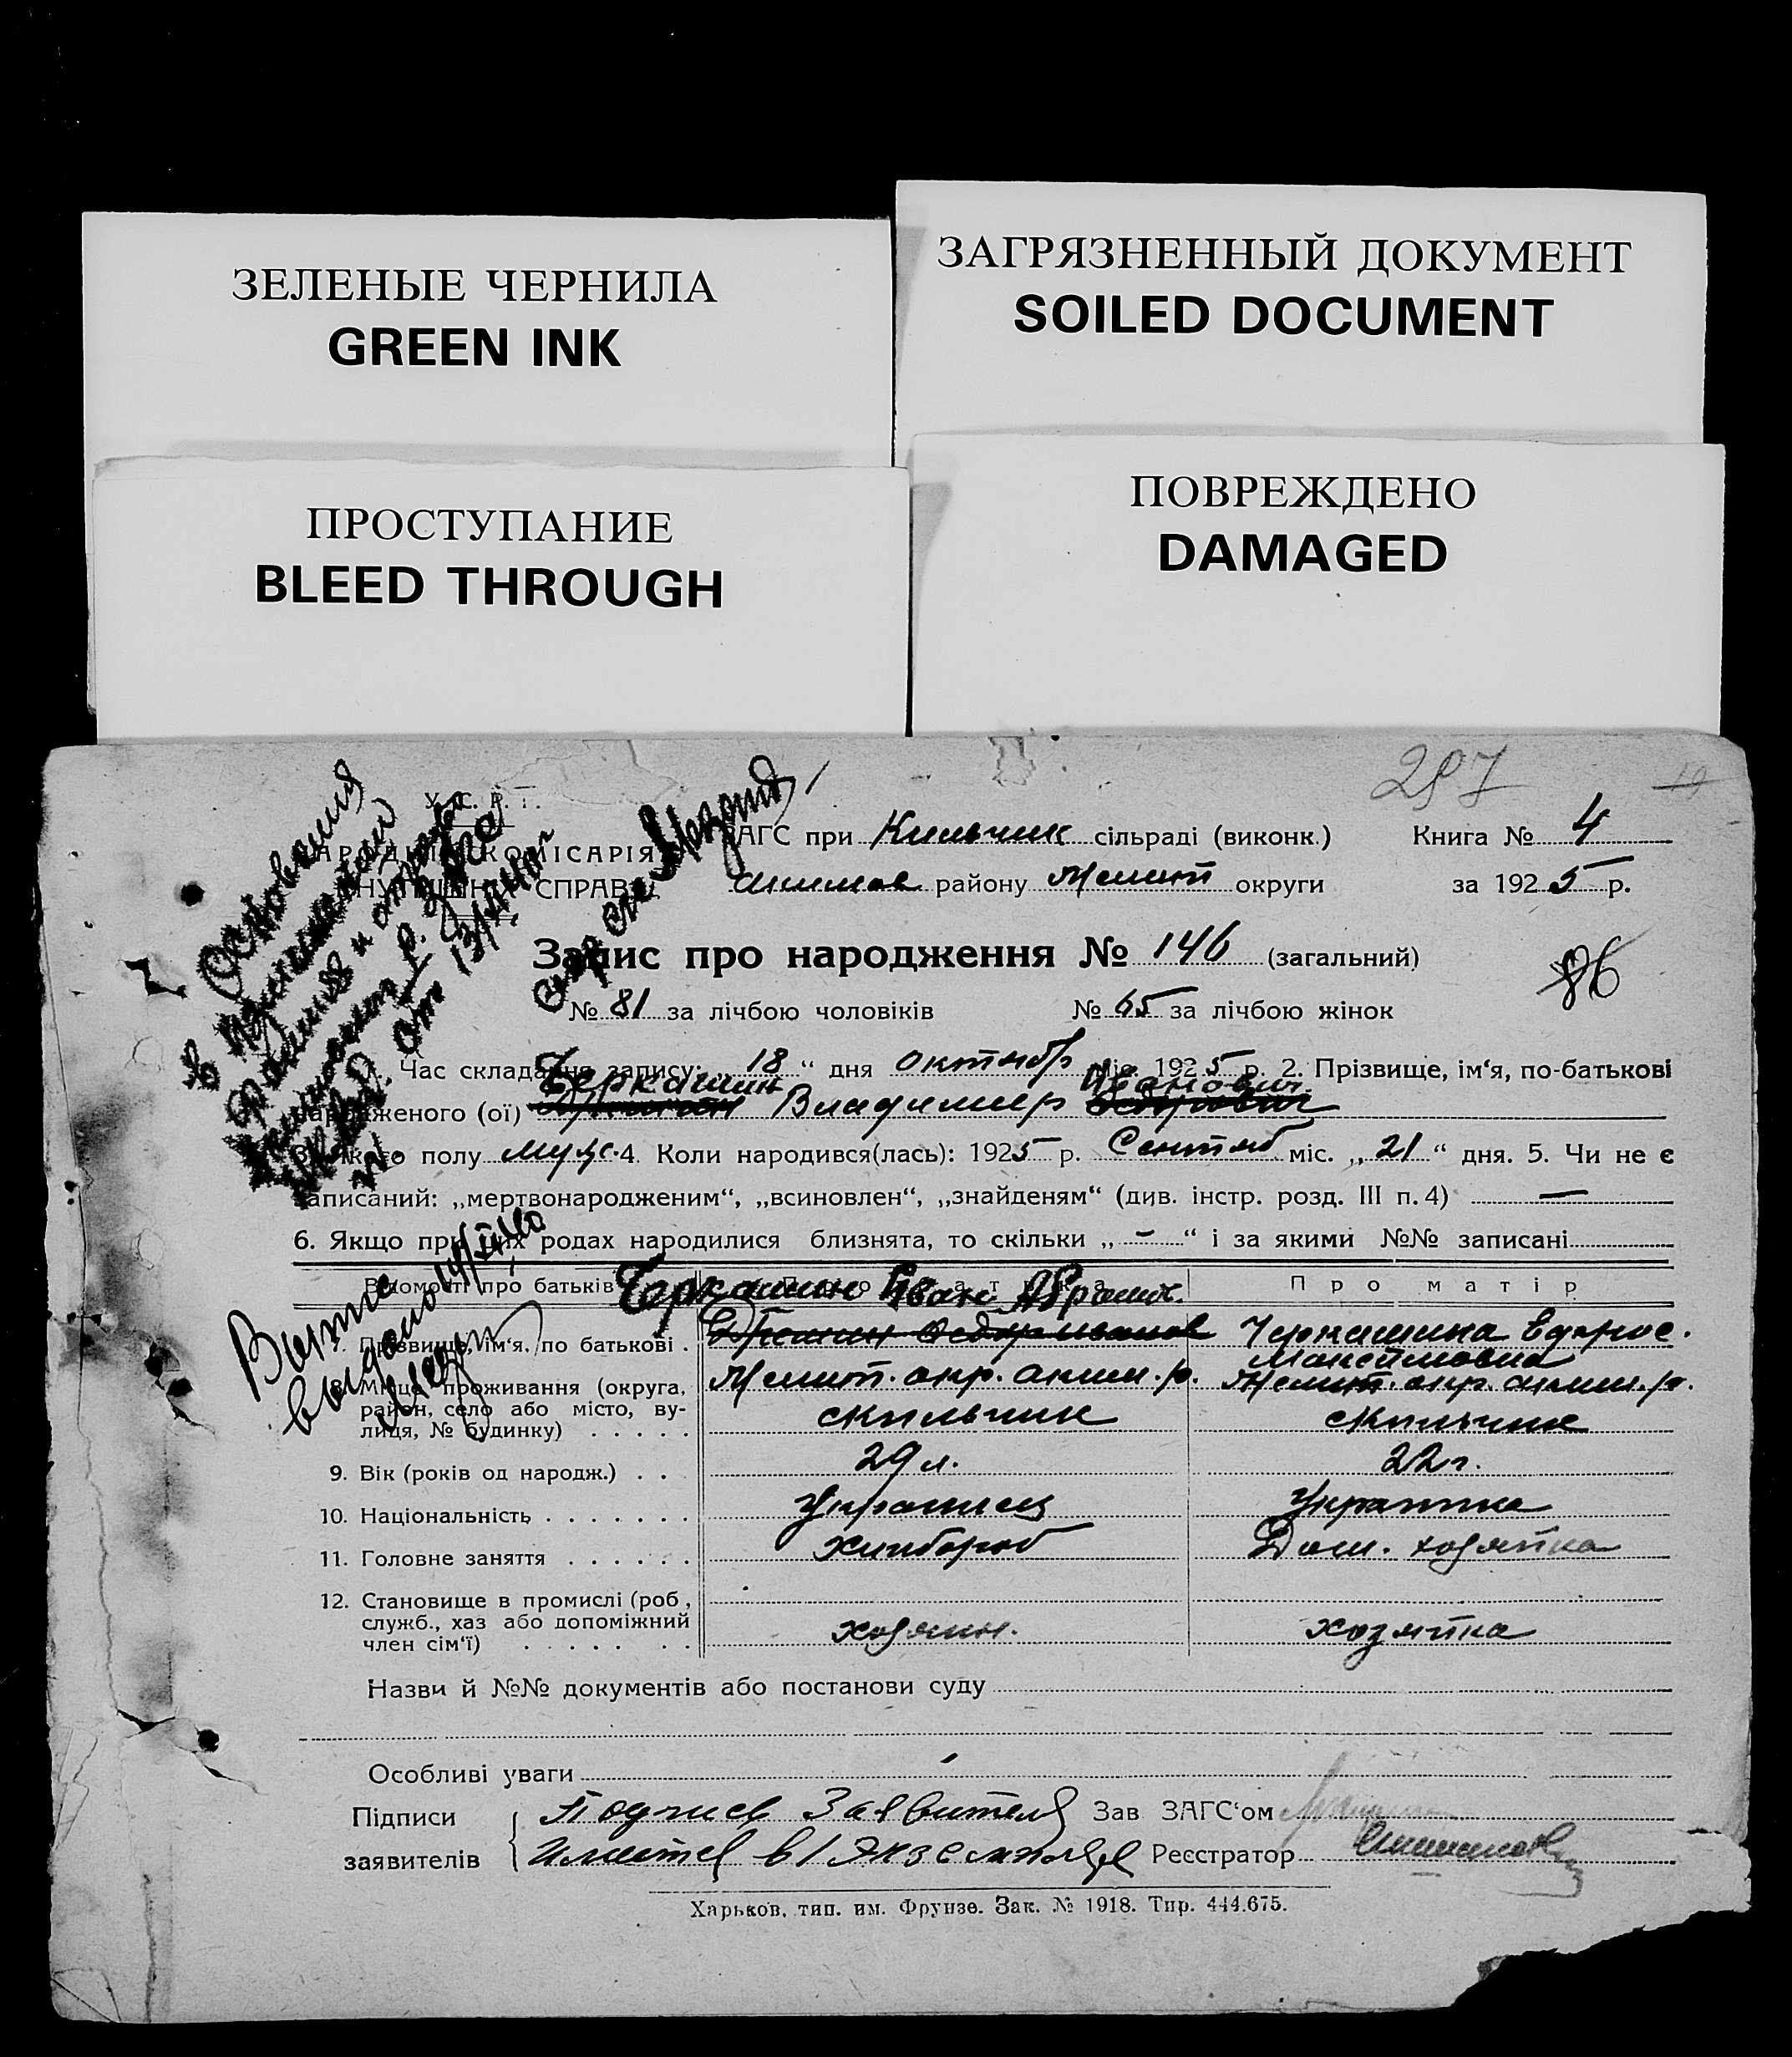 ЗЕЛЕНЫЕ ЧЕРНИЛА
GREEN INK
ЗАГРЯЗНЕННЫЙ ДОКУМЕНТ
SOILED DOCUMENT
ПРОСТУПАНИЕ
BLEED THROUGH
ПОВРЕЖДЕНО
DAMAGED
287
У. С. Р. Р.
АГС при Кильчик сільраді (виконк.) Книга № 4
КОМІСАРІЯ
СПРАВ
Акимов району Мелит округи за 1925 р.
Запис про народження № 146 (загальний)
86
№ 81 за лічбою чоловіків № 65 за лічбою жінок
Час складання запису: 18 “ дня октябр міс. 1925 р. 2. Прізвище, ім‘я, по-батькові
Черкашин Иванович
народженого (ої) Владимир
полу муж. 4. Коли народився(лась): 1925 р. Сентяб міс. „ 21 “ дня. 5. Чи не є
записаний: „мертвонародженим“, „всиновлен“, „знайденям“ (див. інстр. розд. III п. 4) —
6. Якщо при цих родах народилися близнята, то скільки „ - “ і за якими №№ записані
Відомості про батьків Про матір
Черкашин Иван Абрамич.
7. Прізвище, ім‘я, по батькові . Федор Иванов Черкашина
Максимовна
8. Місце проживання (округа, Мелит. окр. аким. р. Мелит. окр. аким. р.
район, село або місто, ву-
лиця, № будинку) . . . . . с Кильчик с Кильчик
9. Вік (років од народж.) . . . 29 л. 22 г.
10. Національність . . . . . . . Украинец Украинка
11. Головне заняття . . . . . . Хлибороб Дом. хозяйка
12. Становище в промислі (роб.,
служб., хаз або допоміжний
член сім‘ї) . . . . . . . хозяин. хозяйка
Назви й №№ документів або постанови суду
Особливі уваги
Підписи Подпись Заявителя Зав ЗАГС‘ом
заявителів Имется в 1 Экземпляре Реєстратор
Харьков, тип. им. Фрунзе. Зак. № 1918. Тир. 444.675.